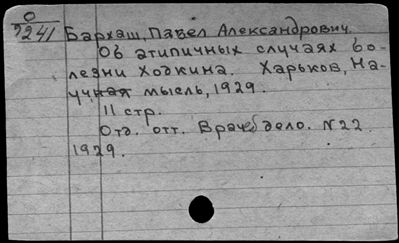 О
7241
Бархаш, Павел Александрович.
Об атипичных случаях бо-
лезни Ходкина. Харьков, На-
учная мысль, 1929.
11 стр.
Отд. отт. Врачеб дело. N22
1929.